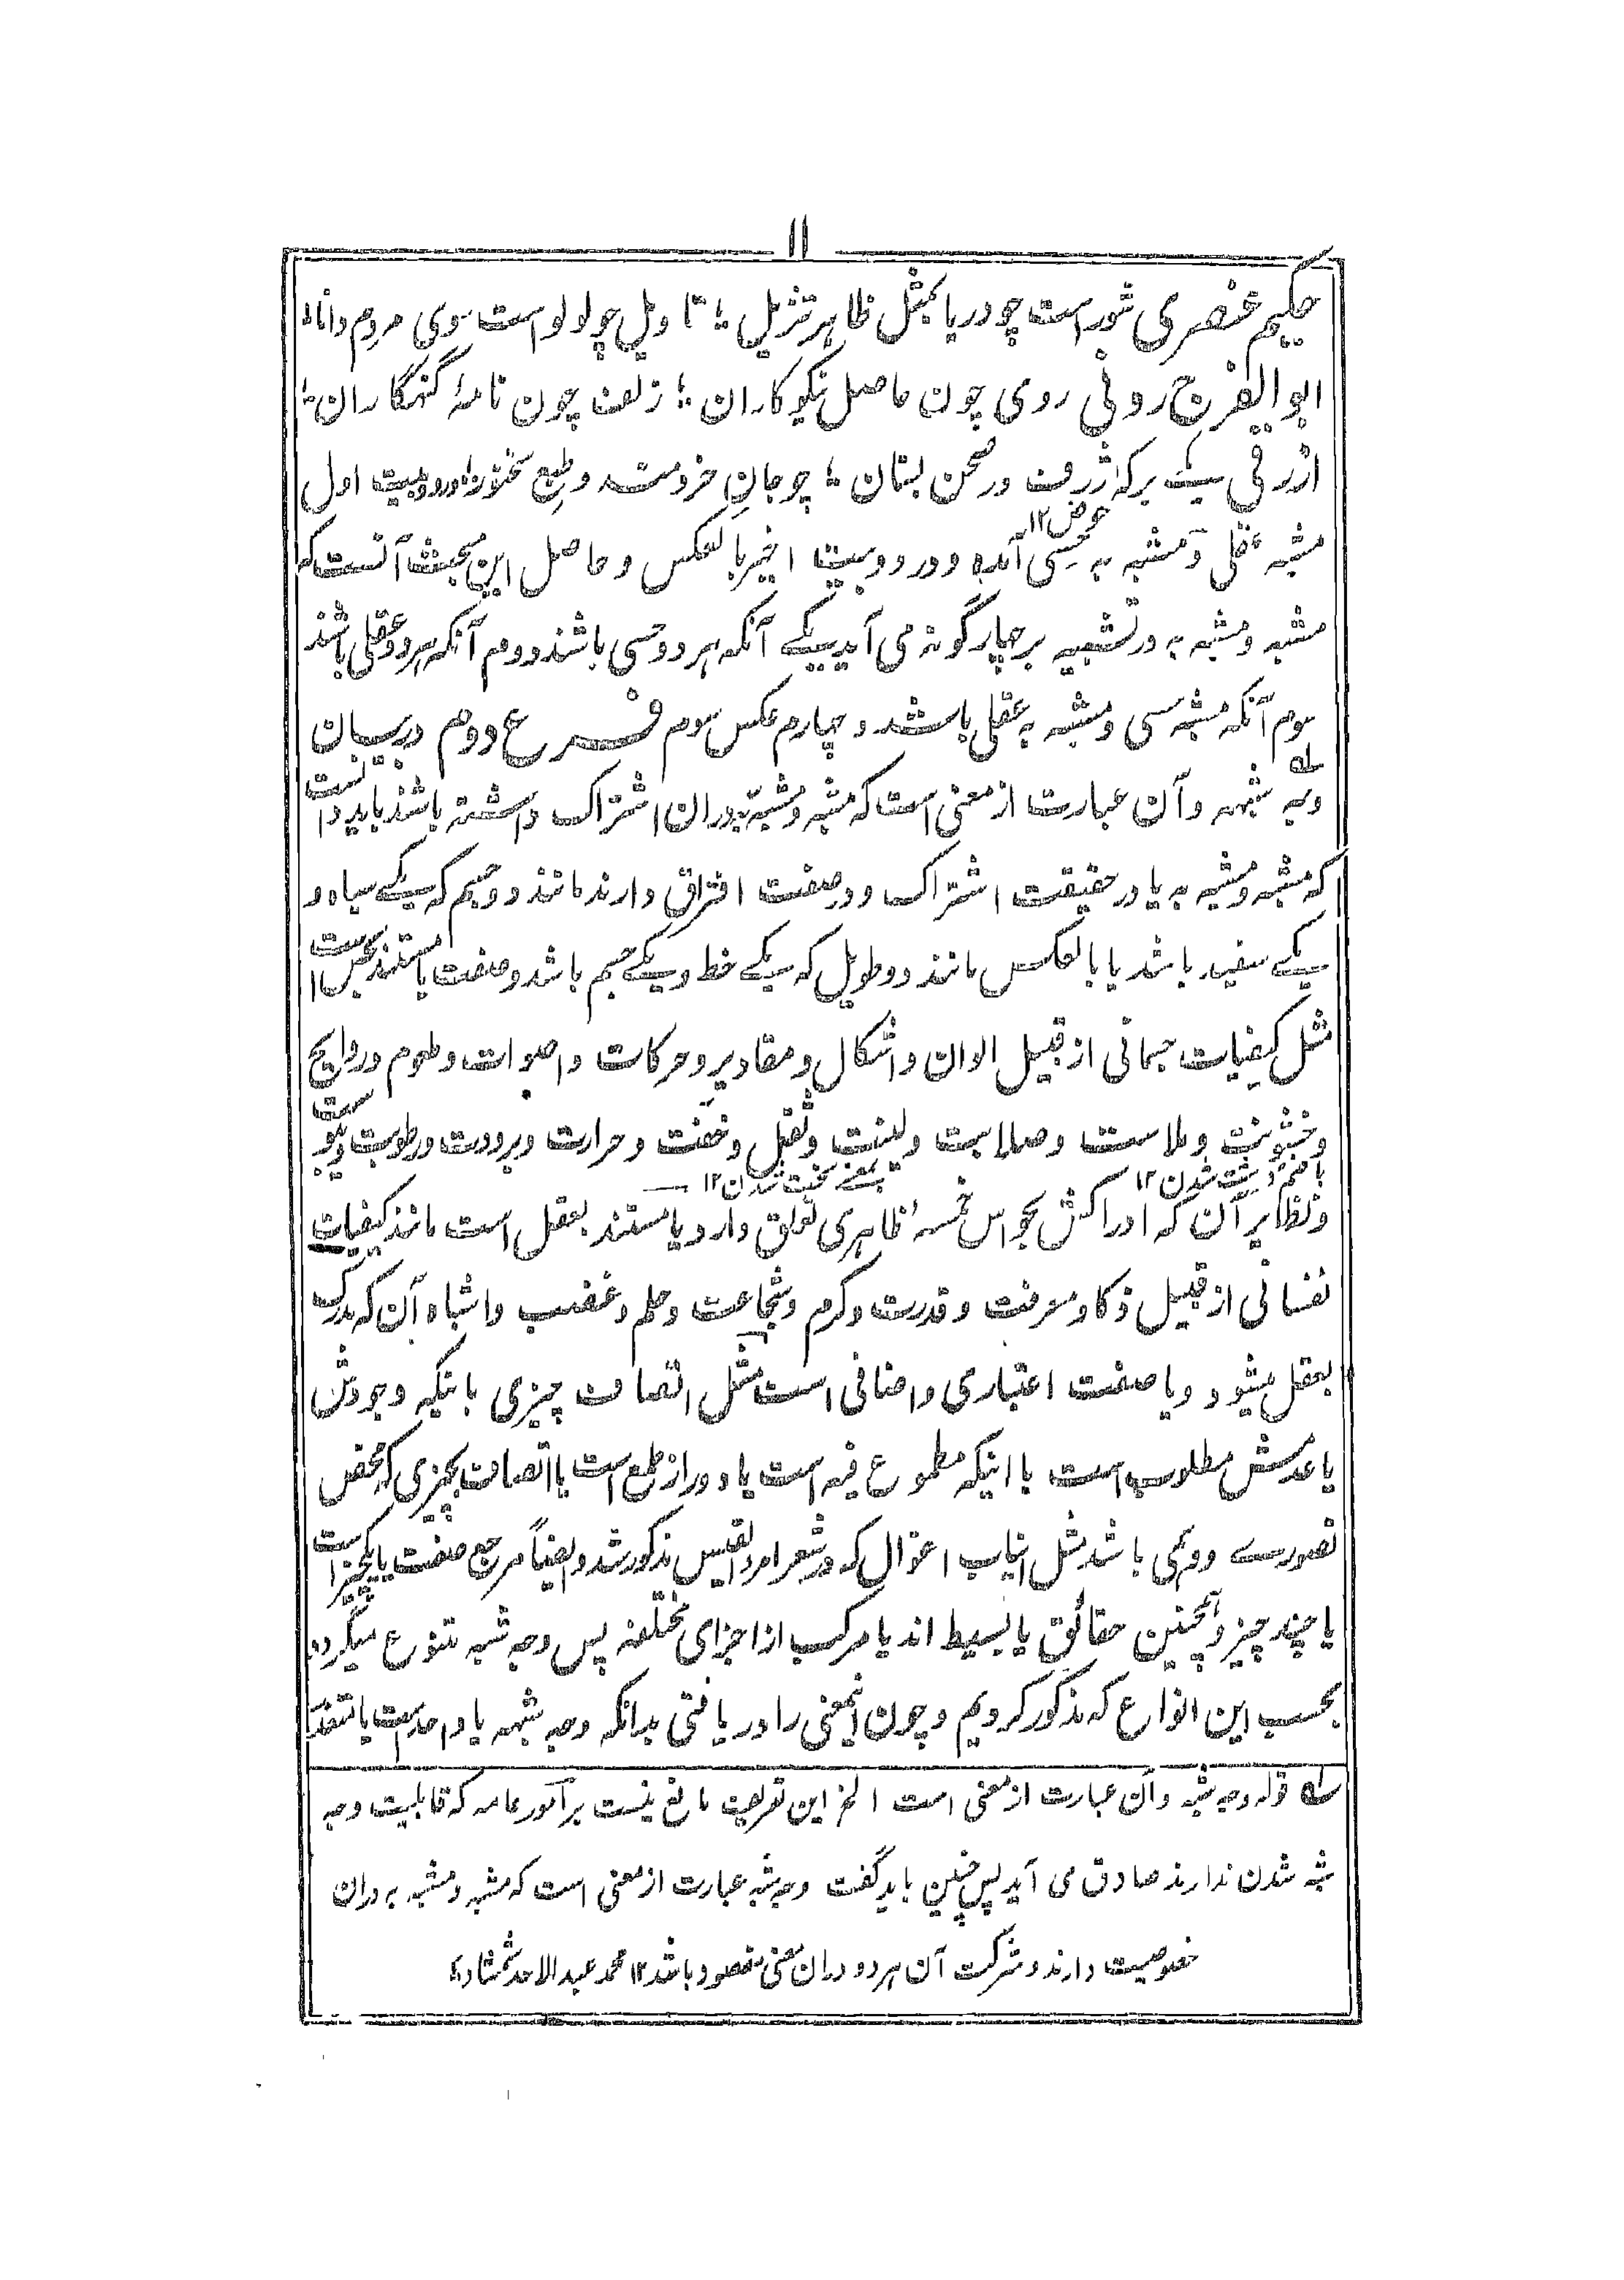 ۱۱
حکیم عنصری شوراست چو دریا بمثل ظاهر تنزیل ؛ تاویل چو لولو است سوی مردم دانا ؛
ابوالفرج رونی روی چون حاصل نکوکاران ؛ زلف چون نامهٔ گنهگاران ؛
ازرقی یکے برکهٔ ژرف در صحن بستان ؛ چو جان خردمند و طبع سخنور ؛ در دو بیت اول
حوض ۱۲
مشبه عقلی و مشبه به حسی آمده و در دو بیت اخیر بالعکس و حاصل این مبحث آنست که
مشبه و مشبه به در تشبیه بر چهار گونه می آید یکے آنکه هر دو حسی باشند دوم آنکه هر دو عقلی باشند
سوم آنکه مشبه حسی و مشبه به عقلی باشد و چهارم عکس سوم فرع دوم در بیان
وجه شبه ؎ و آن عبارت از معنی است که مشبه و مشبه به در ان اشتراک داشته باشند باید دانست
که مشبه و مشبه به یا در حقیقت اشتراک و در صفت افتراق دارند مانند دو جسم که یکے سیاه و
یکے سفید باشد یا بالعکس مانند دو طویل که یکے خط و یکے جسم باشد و صفت یا مستند بحس است
مثل کیفیات جسمانی از قبیل الوان و اشکال و مقادیر و حرکات و اصوات و طعوم و روایح
و خشونت و ملاست و صلابت و لینت و ثقل و خفت و حرارت و برودت و رطوبت و یبوست
بالضم درشت شدن ۱۲ بمعنے سخت شدن ۱۲
و نظایر آن که ادراکش بحواس خمسهٔ ظاهری تعلق دارد یا مستند بعقل است مانند کیفیات
نفسانی از قبیل ذکا و معرفت و قدرت و کرم و شجاعت و حلم و غضب و اشباه آن که مدرک
بعقل میشود و یا صفت اعتباری و اضافی است مثل اتصاف چیزی باینکه وجودش
یا عدمش مطلوب است یا اینکه مطموع فیه است یا دور از طمع است یا اتصاف بچیزی که محض
تصورے و وهمی باشد مثل انیاب اغوال که در شعر امرء القیس مذکور شد و ایضاً مرجع صفت یا یکچیز است
یا چند چیز و همچنین حقائق یا بسیط اند یا مرکب از اجزای مختلفه پس وجه شبه متنوع میگردد
بحسب این انواع که مذکور کردیم و چون اینمعنی را دریافتی بدانکه وجه شبه یا واحد است یا متعدد
؎ قوله وجه شبه و آن عبارت از معنی است الخ این تعریف مانع نیست بر امور عامه که قابلیت وجه
شبه شدن ندارند صادق می آید پس چنین باید گفت وجه شبه عبارت از معنی است که مشبه و مشبه به دران
خصوصیت دارند و شرکت آن هر دو دران معنی مقصود باشد ۱۲ محمد عبد الاحد شمشاد ؛